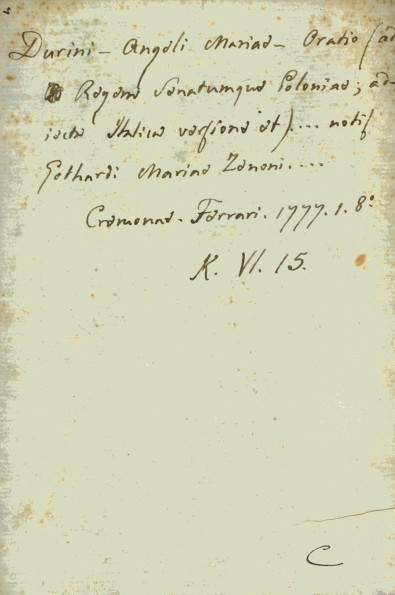 Durini - Angeli Mariae - Oratio (ad
Regem Senatumque Poloniae; ad-
iecta Italica versione et).... notis
Gothardi Mariae Zenoni....
Cremonae - Ferrari. 1777. 1. 8.°
K. VI. 15.
C